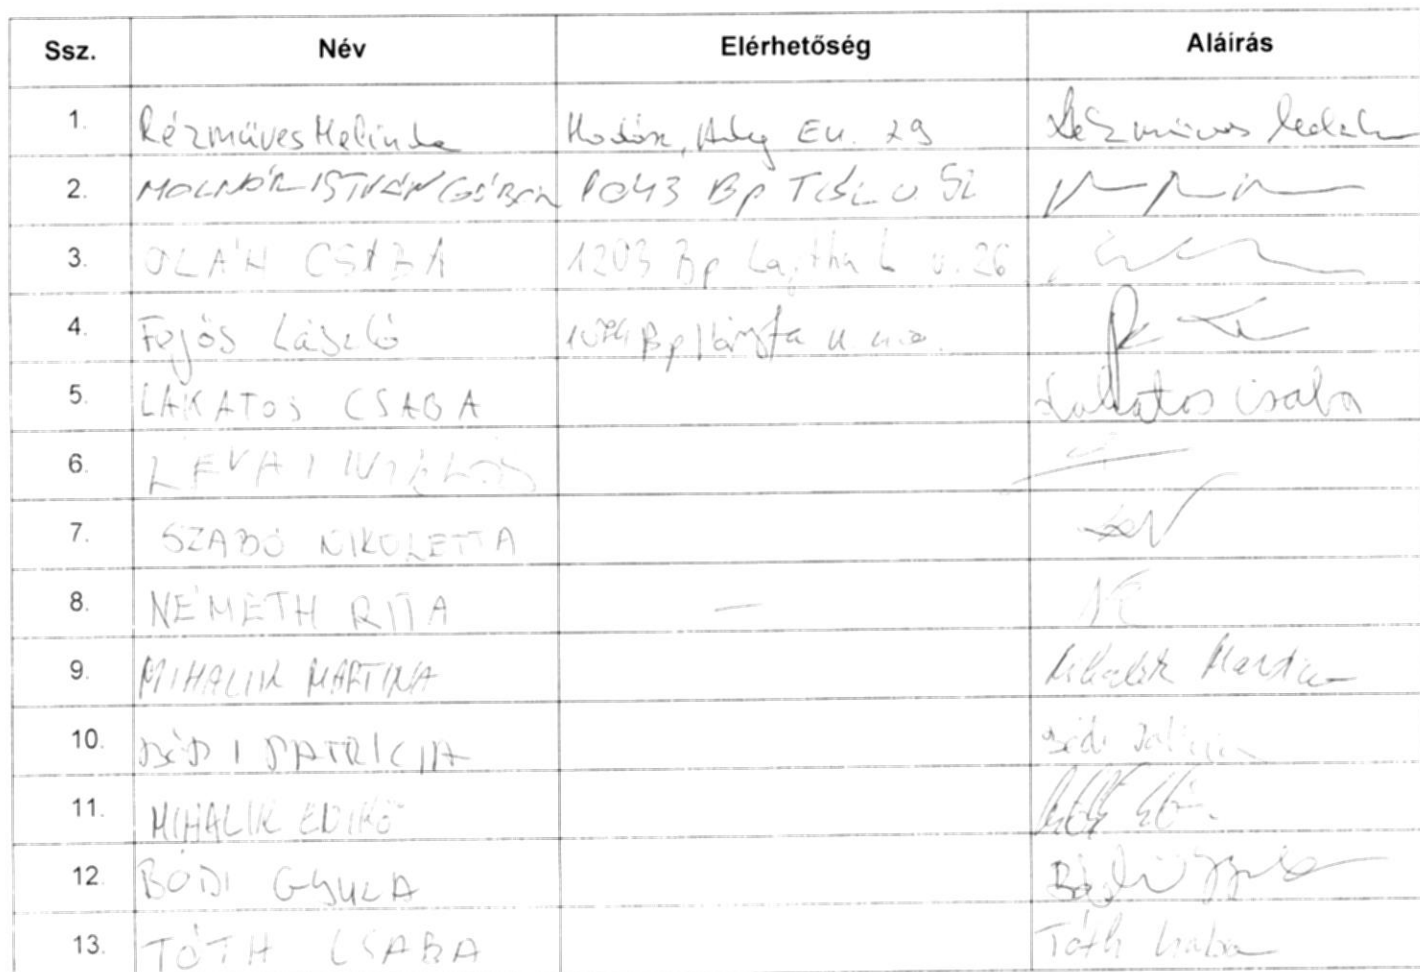 Ssz. Név Elérhetőség Aláírás
1. Rézműves Melinda 29 Rézműves
2. MOLNÁR ISTVÁN GÁBOR 1043 Bp TÉL U. 52
3. OLÁH CSABA 1203 Bp Lajtha L u. 26
4. Fojós László 1074 Bp Hársfa u
5. LAKATOS CSABA Lakatos Csaba
6. LÉVAI MIKLÓS
7. SZABÓ NIKOLETTA
8. NÉMETH RITA —
9. MIHALIK MARTINA Mihalik Martina
10. BÓDI PATRÍCIA Bódi Patrícia
11. MIHALIK ENIKŐ
12. BÓDI GYULA Bódi Gyula
13. TÓTH CSABA Tóth Csaba